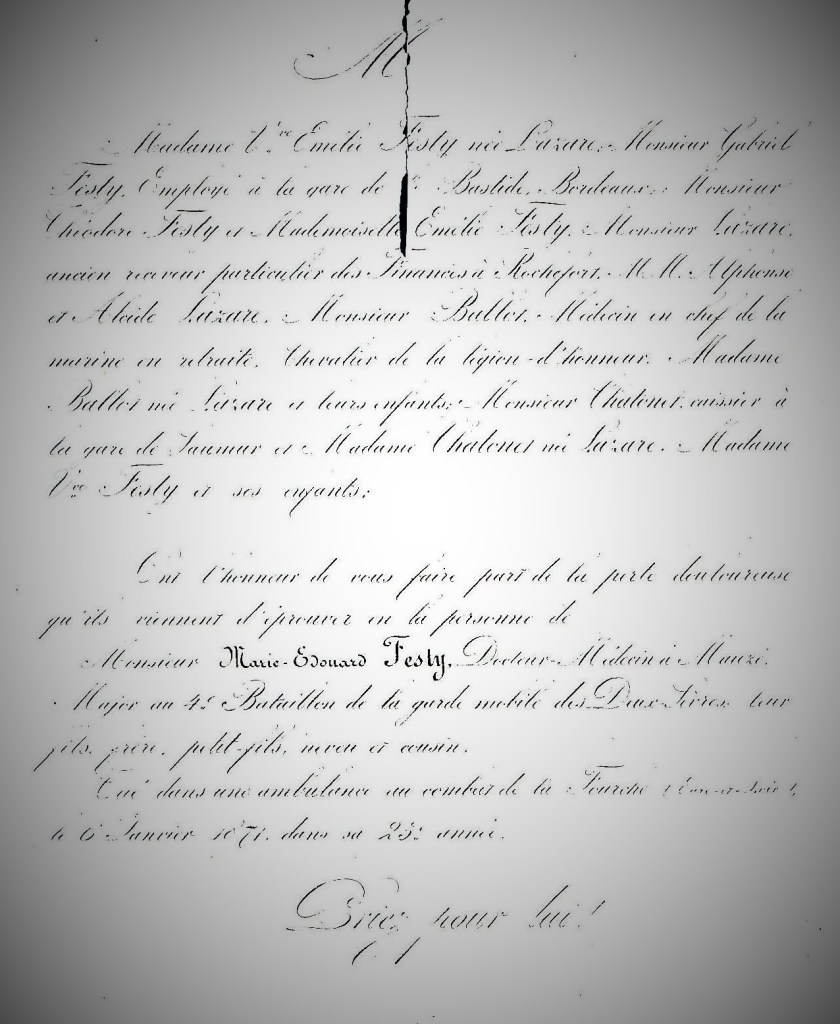 M
Madame Vve Emilie Festy née Lazare, Monsieur Gabriel
Festy, Employé à la gare de la Bastide, Bordeaux, Monsieur
Théodore Festy et Mademoiselle Emilie Festy, Monsieur Lazare,
ancien receveur particulier des Finances à Rochefort, M.M. Alphonse
et Alcide Lazare, Monsieur Ballot, Médecin en chef de la
marine en retraite, Chevalier de la légion-d'honneur, Madame
Ballot née Lazare et leurs enfants, Monsieur Chatonet, caissier à
la gare de Saumur et Madame Chatonet née Lazare, Madame
Vve Festy et ses enfants;
Ont l'honneur de vous faire part de la perte douloureuse
qu'ils viennent d'éprouver en la personne de
Monsieur Marie-Edouard Festy, Docteur-Médecin à Mauzé,
Major au 4e Bataillon de la garde mobile des Deux-Sèvres, leur
fils, frère, petit-fils, neveu et cousin.
Tué dans une ambulance au combat de la Fourche (Eure-et-Loir),
le 6 Janvier 1871, dans sa 25e année.
Priez pour lui!